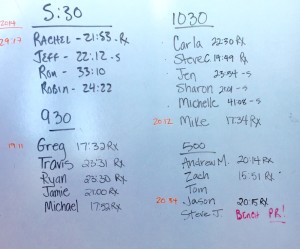 5:30
2014
29:17
RACHEL - 21:53 - Rx
JEFF - 22:12 - S
RON - 33:10
ROBIN - 24:22
930
19:11
Greg 17:32 Rx
Travis 23:31 Rx
Ryan 23:30 Rx
Jamie 21:00 Rx
Michael 17:52 Rx
1030
Carla 22:30 Rx
Steve C. 19:99 Rx
Jen 23:54 - S
Sharon - S
Michelle 41:08 - S
20:12
Mike 17:34 Rx
500
Andrew M. 20:14 Rx
Zach 15:51 Rx
Tom
20:34
Jason 20:15 Rx
Steve J. BENCH PR!